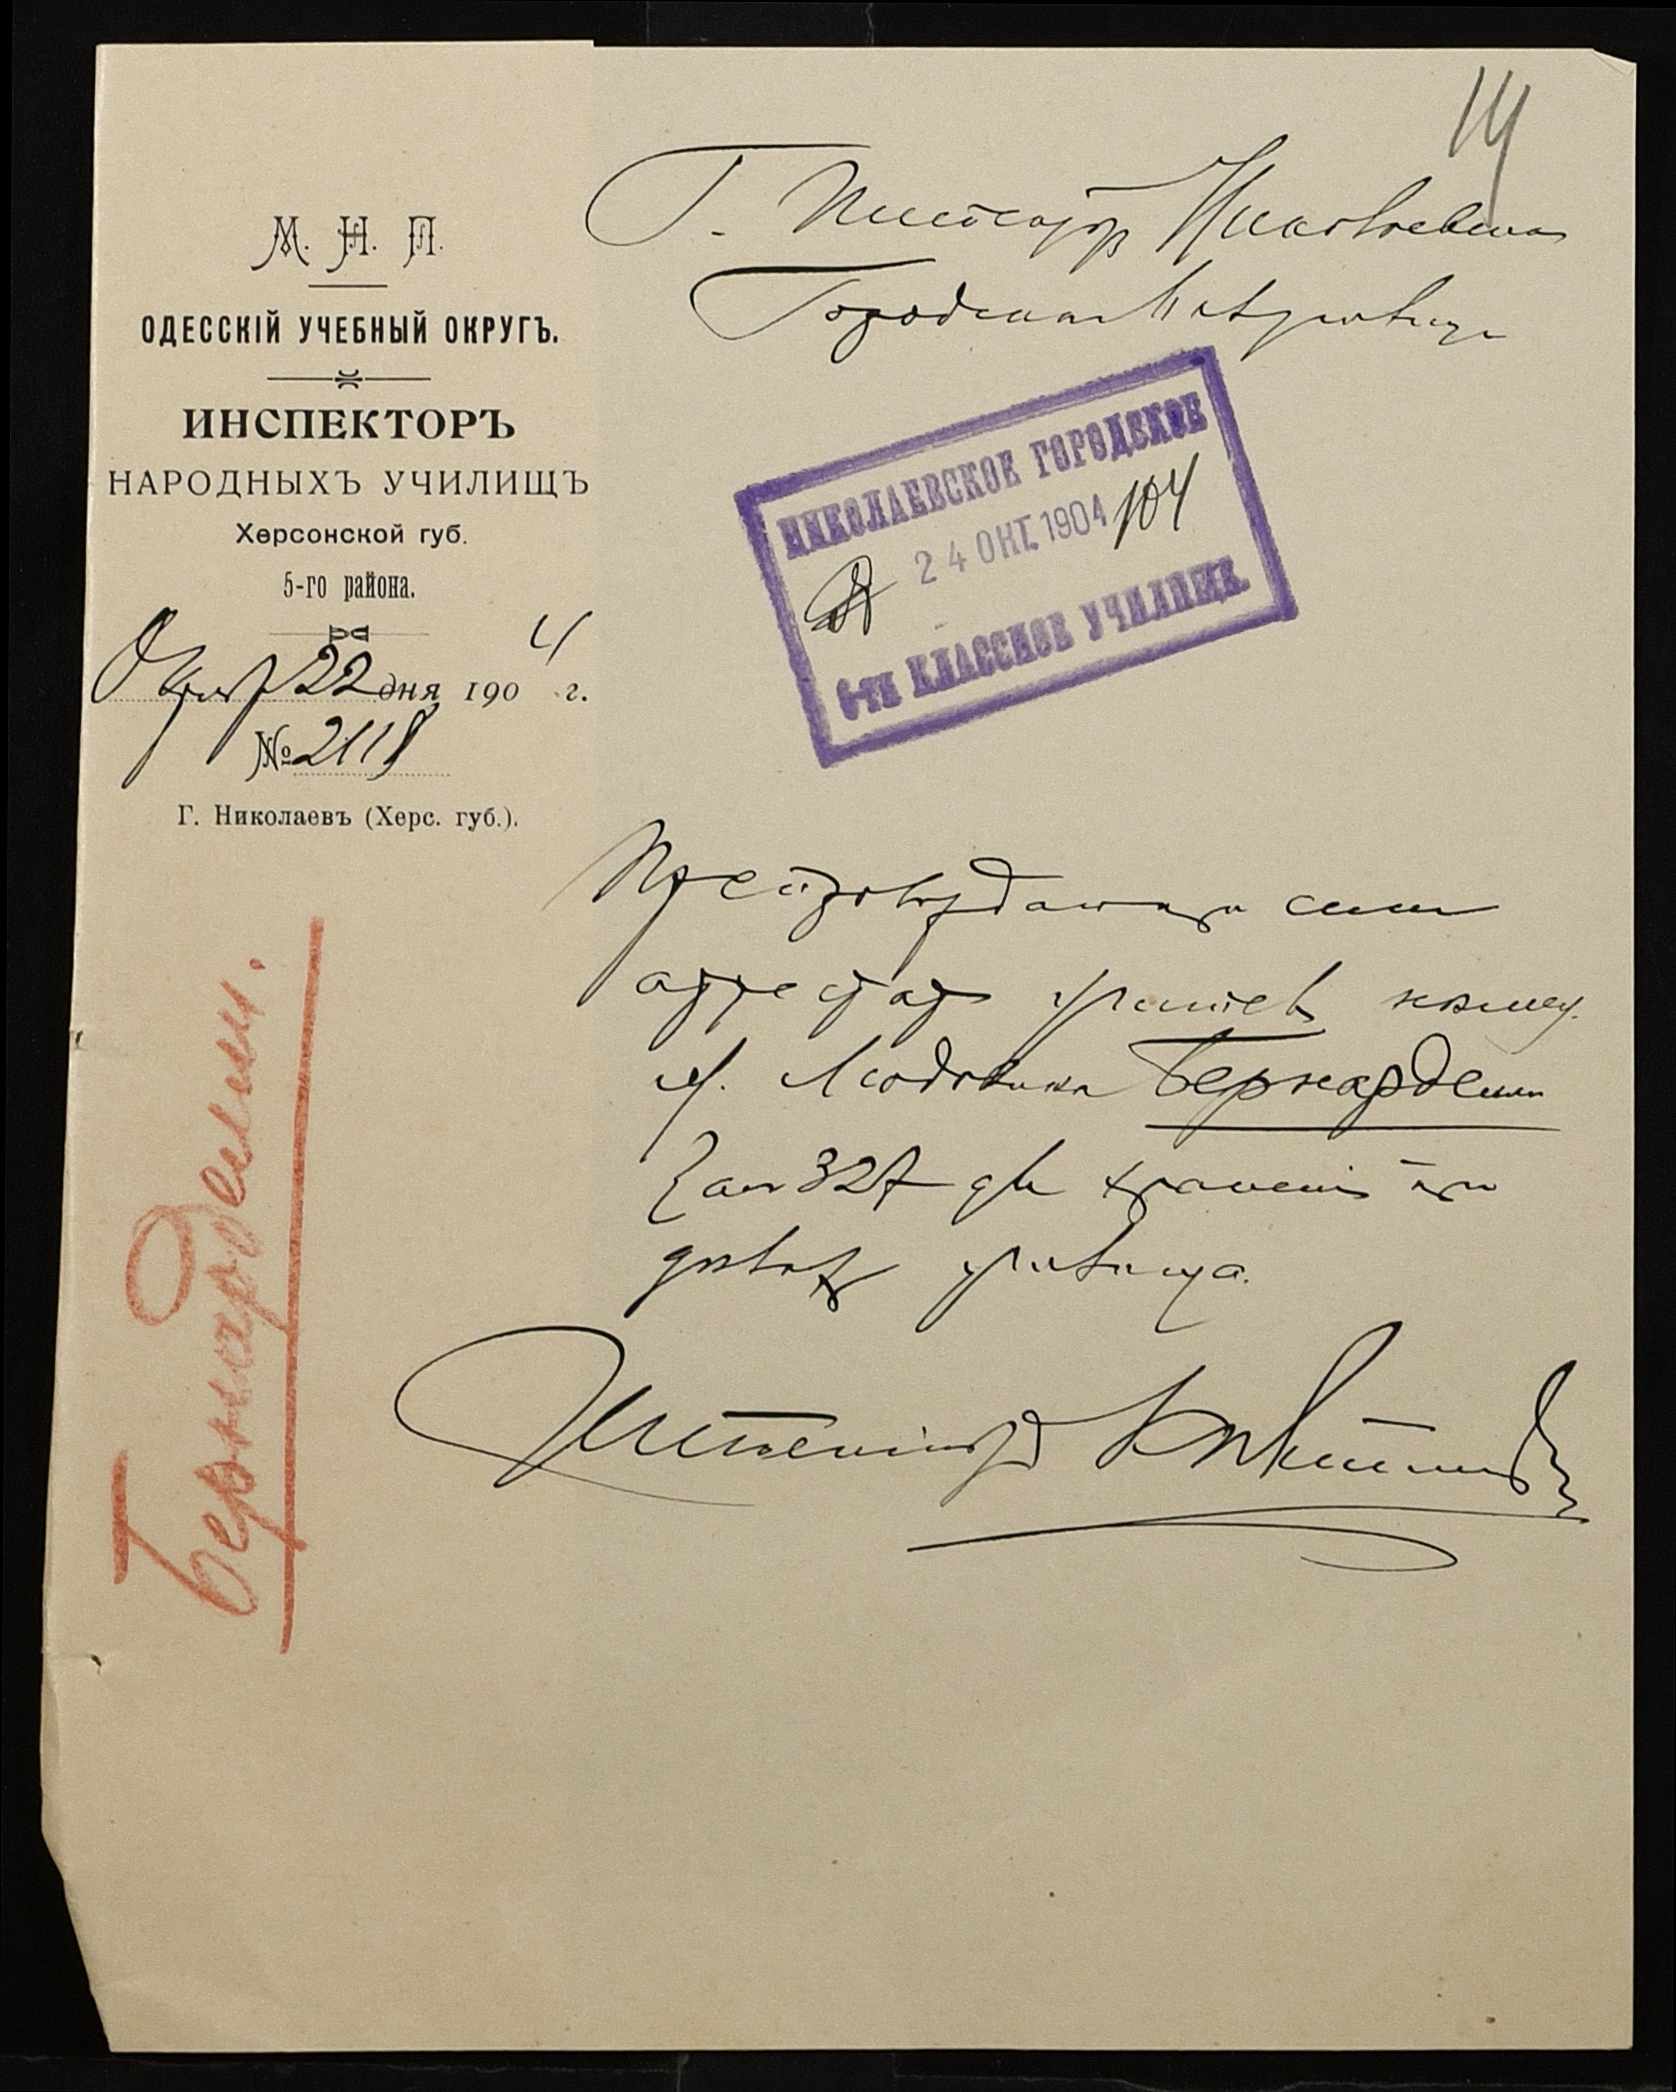 14
М. Н. П.
ОДЕССКІЙ УЧЕБНЫЙ ОКРУГЪ.
ИНСПЕКТОРЪ
НАРОДНЫХЪ УЧИЛИЩЪ
Херсонской губ.
5-го района.
Октября 22 дня 1904 г.
№ 2118
Г. Николаевъ (Херс. губ.).
Г. Николаевскаго
Городскаго
НИКОЛАЕВСКОЕ ГОРОДСКОЕ
24 ОКТ. 1904 104
6-ТИ КЛАССНОЕ УЧИЛИЩЕ.
Препровождая при семъ
аттестатъ
Людовика Бернардели
за № 327 для храненія при
дѣлахъ училища.
Инспекторъ
Бернардели.